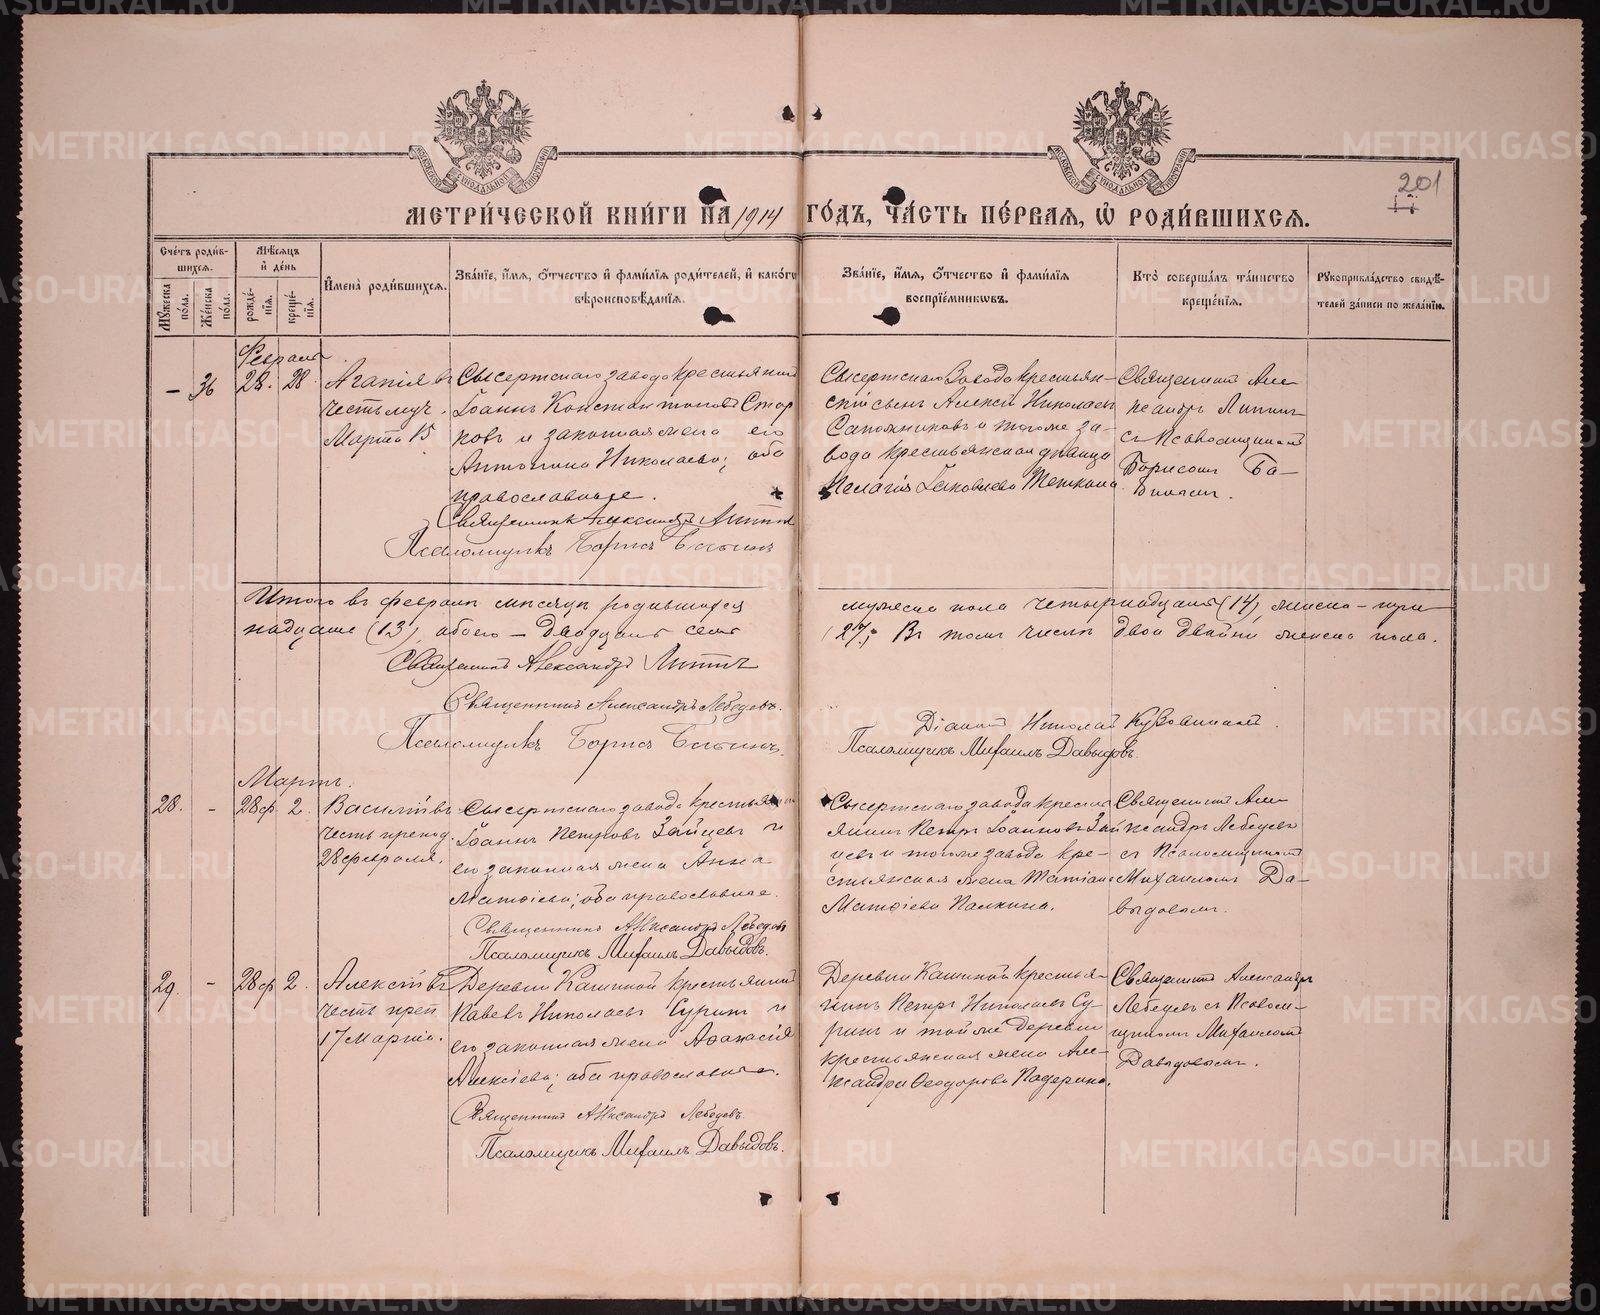 METRIKI.GASO-URAL.RU
201
МЕТРИЧЕСКОЙ КНИГИ НА 1914 ГОДЪ, ЧАСТЬ ПЕРВАЯ, Ѡ РОДИВШИХСЯ.
Счетъ родившихся.
Мужеска пола.
Женска пола.
Мѣсяцъ и день
рожденія.
крещенія.
Имена родившихся.
Званіе, имя, отчество и фамилія родителей, и какого
вѣроисповѣданія.
Званіе, имя, отчество и фамилія
воспріемниковъ.
Кто совершалъ таинство
крещенія.
Рукоприкладство свидѣтелей записи по желанію.
Февраль
- 36 28. 28
Агапія въ
честь муч.
Марта 15
Сысертскаго завода крестьянинъ
Іоаннъ Константиновъ
и законная жена его
Антонина Николаева, оба
православные.
Священникъ Александръ
Псаломщикъ Борисъ
Сысертскаго завода крестьян-
скій сынъ Алексѣй Николаевъ
Сапожниковъ и тогоже за-
вода крестьянская дѣвица
Пелагія Іаковлева
Священникъ Але-
ксандръ
съ Псаломщикомъ
Борисомъ
Итого въ февралѣ мѣсяцѣ родившихся
мужеска пола четырнадцать (14), женска - три-
надцать (13), обоего - двадцать семь
(27); Въ томъ числѣ двои двойни женска пола.
Священникъ Александръ
Священникъ Александръ Лебедевъ.
Псаломщикъ Борисъ
Діаконъ Николай
Псаломщикъ Михаилъ Давыдовъ.
Мартъ.
28. - 28ф 2.
Василій въ
честь препод.
28 февраля.
Сысертскаго завода крестьянинъ
Іоаннъ Петровъ Зайцевъ и
его законная жена Анна
Матѳіева; оба православные.
Священникъ Александръ Лебедевъ
Псаломщикъ Михаилъ Давыдовъ.
Сысертскаго завода кресть-
янинъ Петръ Іоанновъ Зай-
цевъ и тогоже завода кре-
стьянская жена Татіана
Матѳіева Палкина.
Священникъ Але-
ксандръ Лебедевъ
съ Псаломщикомъ
Михаиломъ Да-
выдовымъ.
29. - 28ф 2.
Алексій въ
честь преп.
17 Марта.
Деревни Кашиной крестьянинъ
Павелъ Николаевъ Суринъ и
его законная жена Аѳанасія
Алексіева; оба православные.
Священникъ Александръ Лебедевъ.
Псаломщикъ Михаилъ Давыдовъ.
Деревни Кашиной крестья-
нинъ Петръ Николаевъ Су-
ринъ и тойже деревни
крестьянская жена Але-
ксандра Ѳеодорова Падерина.
Священникъ Александръ
Лебедевъ съ Псалом-
щикомъ Михаиломъ
Давыдовымъ.